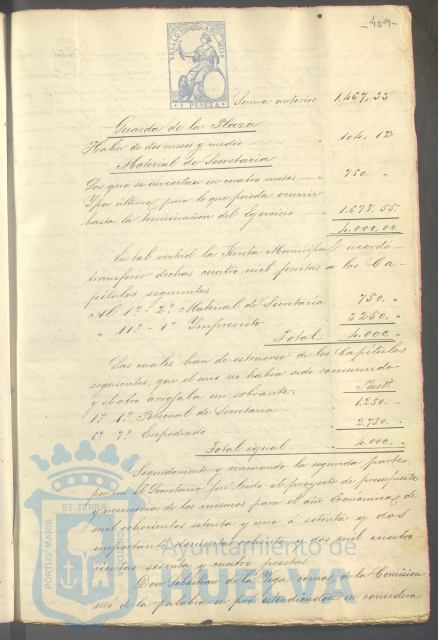 -409-
1 PESETA
Suma anterior 1.467,33
Guarda de la Plaza
Haber de dos meses y medio 104.12
Material de Secretaria
Los que se invertan en cuatro meses 750. "
Y por último, para lo que pueda ocurrir
hasta la terminación del Ejercicio 1.678.55.
4.000,00
En tal virtud la Junta Municipal acordó
transferir dichas cuatro mil pesetas a los Ca-
pítulos siguientes
Al 1º - 2º Material de Secretaria 750. "
" 11º - 1º Imprevisto 3250. "
Total 4.000. "
Los cuales han de estraerse de los Capítulos
siguientes, que el uno no habia sido consumido
y el otro arrojaba un sobrante. Pesets
1º 1º Personal de Secretaria 1.250. "
6º 7º Empedrado 2.750. "
Total igual 4.000. "
Seguidamente y evacuando la segunda parte,
por mi el Secretario fue leido el proyecto de presupuesto
y memoria de los mismos para el año Económico de
mil ochocientos setenta y uno á setenta y dos
importante doscientas ochenta y dos mil cuatro
cientas sesenta y cuatro pesetas
Don Sebastian de la Vega como de la Comision
usó de la palabra en pro estendiendose en considera
Ayuntamiento de
HUELVA
PORTUS MARIS
ET TERRÆ
CUSTODIA